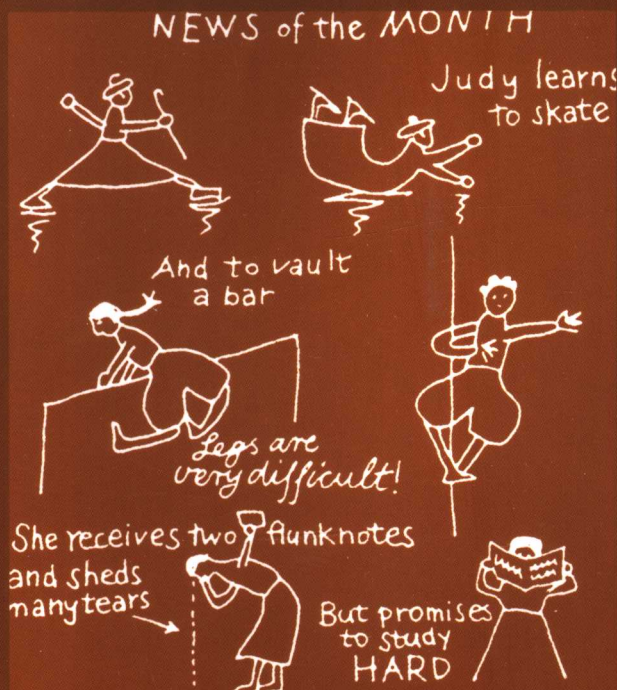 NEWS of the MONTH
Judy learns
to skate
And to vault
a bar
Legs are
very difficult!
She receives two flunknotes
and sheds
many tears
But promises
to study
HARD